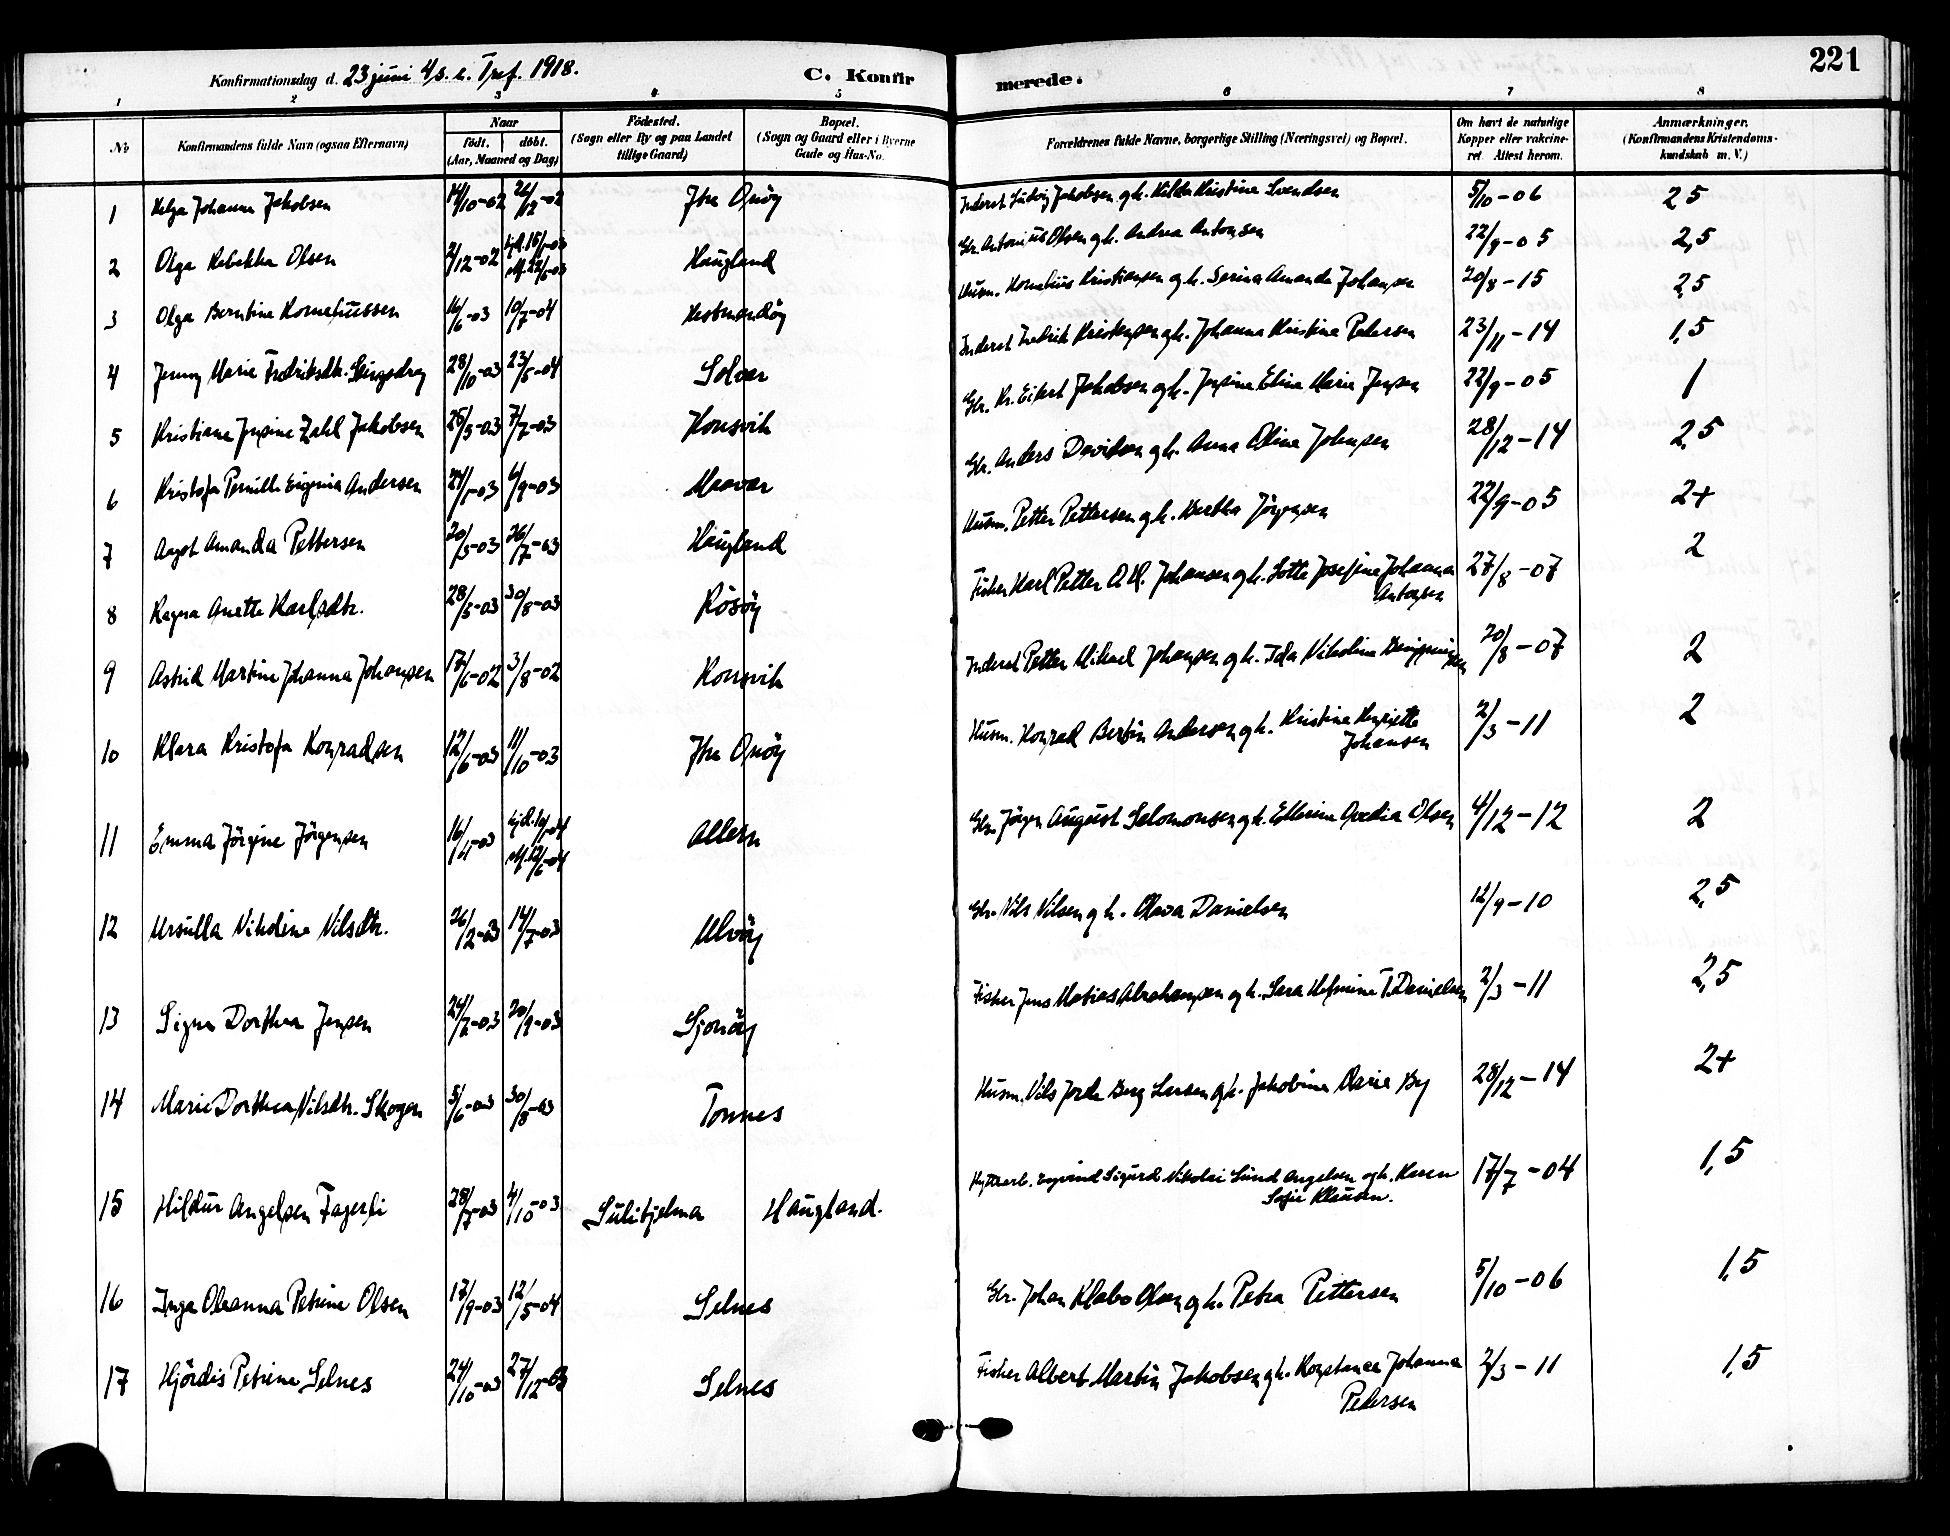 221
Konfirmationsdag d. 23 juni 4 s. e. Tref. 1918. C. Konfirmerede.
1 2 3 4 5 6 7 8
No
Konfirmandens fulde Navn (ogsaa Efternavn)
Naar
født. døbt.
(Aar, Maaned og Dag)
Fødested.
(Sogn eller By og paa Landet
tillige Gaard)
Bopæl.
(Sogn og Gaard eller i Byerne
Gade og Hus-No.
Forældrenes fulde Navne, borgerlige Stilling (Næringsvei) og Bopæl.
Om havt de naturlige
Kopper eller vakcine-
ret Attest herom.
Anmærkninger.
(Konfirmandens Kristendoms-
kundskab m. V.)
1 Helga Johanna Jakobsen 14/10-02 26/12-02 Ytre Qvøy Inderst Ludvig Jakobsen og h. Hilda Kristine Svendsen 5/10-06 2,5
2 Olga Rebekka Olsen 2/12-02 Haugland Gbr. Antonius Olsen og h. Andrea Antonsen 22/9-05 2,5
3 Olga Berntine Korneliussen 16/6-03 10/7-04 Hestmandøy Husm. Kornelius Kristiansen og h. Serina Amanda Johansen 20/8-15 2,5
4 Jenny Marie Fredriksdtr. 28/10-03 23/5-04 Solvær Inderst Fredrik Kristensen og h. Johanna Kristine Pedersen 23/11-14 1,5
5 Kristiane Jensine Zahl Jakobsen 25/5-03 7/7-03 Konsvik Gbr. Kr. Eikert Jakobsen og h. Jensine Eline Marie Jensen 22/9-05 1
6 Kristofa Pernille Eugenia Andersen 6/9-03 Maavær Gbr. Anders Davidsen og h. Anna Oline Johnsen 28/12-14 2,5
7 Amanda Pettersen 20/5-03 26/7-03 Haugland Husm. Petter Pettersen og h. Bertha Jørgensen 22/9-05 2+
8 Ragna Anette Karlsdtr. 28/5-03 30/8-03 Røsøy Fisker Karl Petter Johansen og h. Lotte Josefine Johanna
Antonsen 27/8-07 2
9 Astrid Martine Johanna Johansen 17/6-02 3/8-02 Konsvik Inderst Petter Mikael Johansen og h. Ida Nikoline 20/8-07 2
10 Klara Kristofa Konradsen 17/6-03 11/10-03 Ytre Qvøy Husm. Konrad Bertin Andersen og h. Kristine Henriette
Johansen 2/3-11 2
11 Emma Jørgine Jørgensen 16/4-03 Alderen Gbr. Jørgen August Salomonsen og h. Olsen 4/12-12 2
12 Ursulla Nikoline Nilsdtr. 26/2-03 14/7-03 Ulvøy Gbr. Nils Nilsen og h. Olava Danielsen 12/9-10 2,5
13 Signe Dorthea Jensen 24/7-03 20/9-03 Sjonøy Fisker Jens Matias Abrahamsen og h. Sara T. Danielsen 2/3-11 2,5
14 Marie Dorthea Nilsdtr. Skogen 5/6-03 30/8-03 Tonnes Husm. Nils Berg Larsen og h. Jakobine Marie By 28/12-14 2+
15 Hildur Angelsen Fagerli 28/7-03 4/10-03 Sulitjelma Haugland. Hyttearb. Eyvind Sigurd Nikolai Lund Angelsen og h. Karen
Sofie Klausen. 17/7-04 1,5
16 Inga Oleanna Petrine Olsen 17/9-03 12/5-04 Selnes Gbr. Johan Klabo Olsen og h. Petra Pettersen 5/10-06 1,5
17 Hjørdis Petrine Selnes 24/10-03 27/12-03 Selnes Fisker Albert Martin Jakobsen og h. Konstance Johanna
Pedersen 2/3-11 1,5